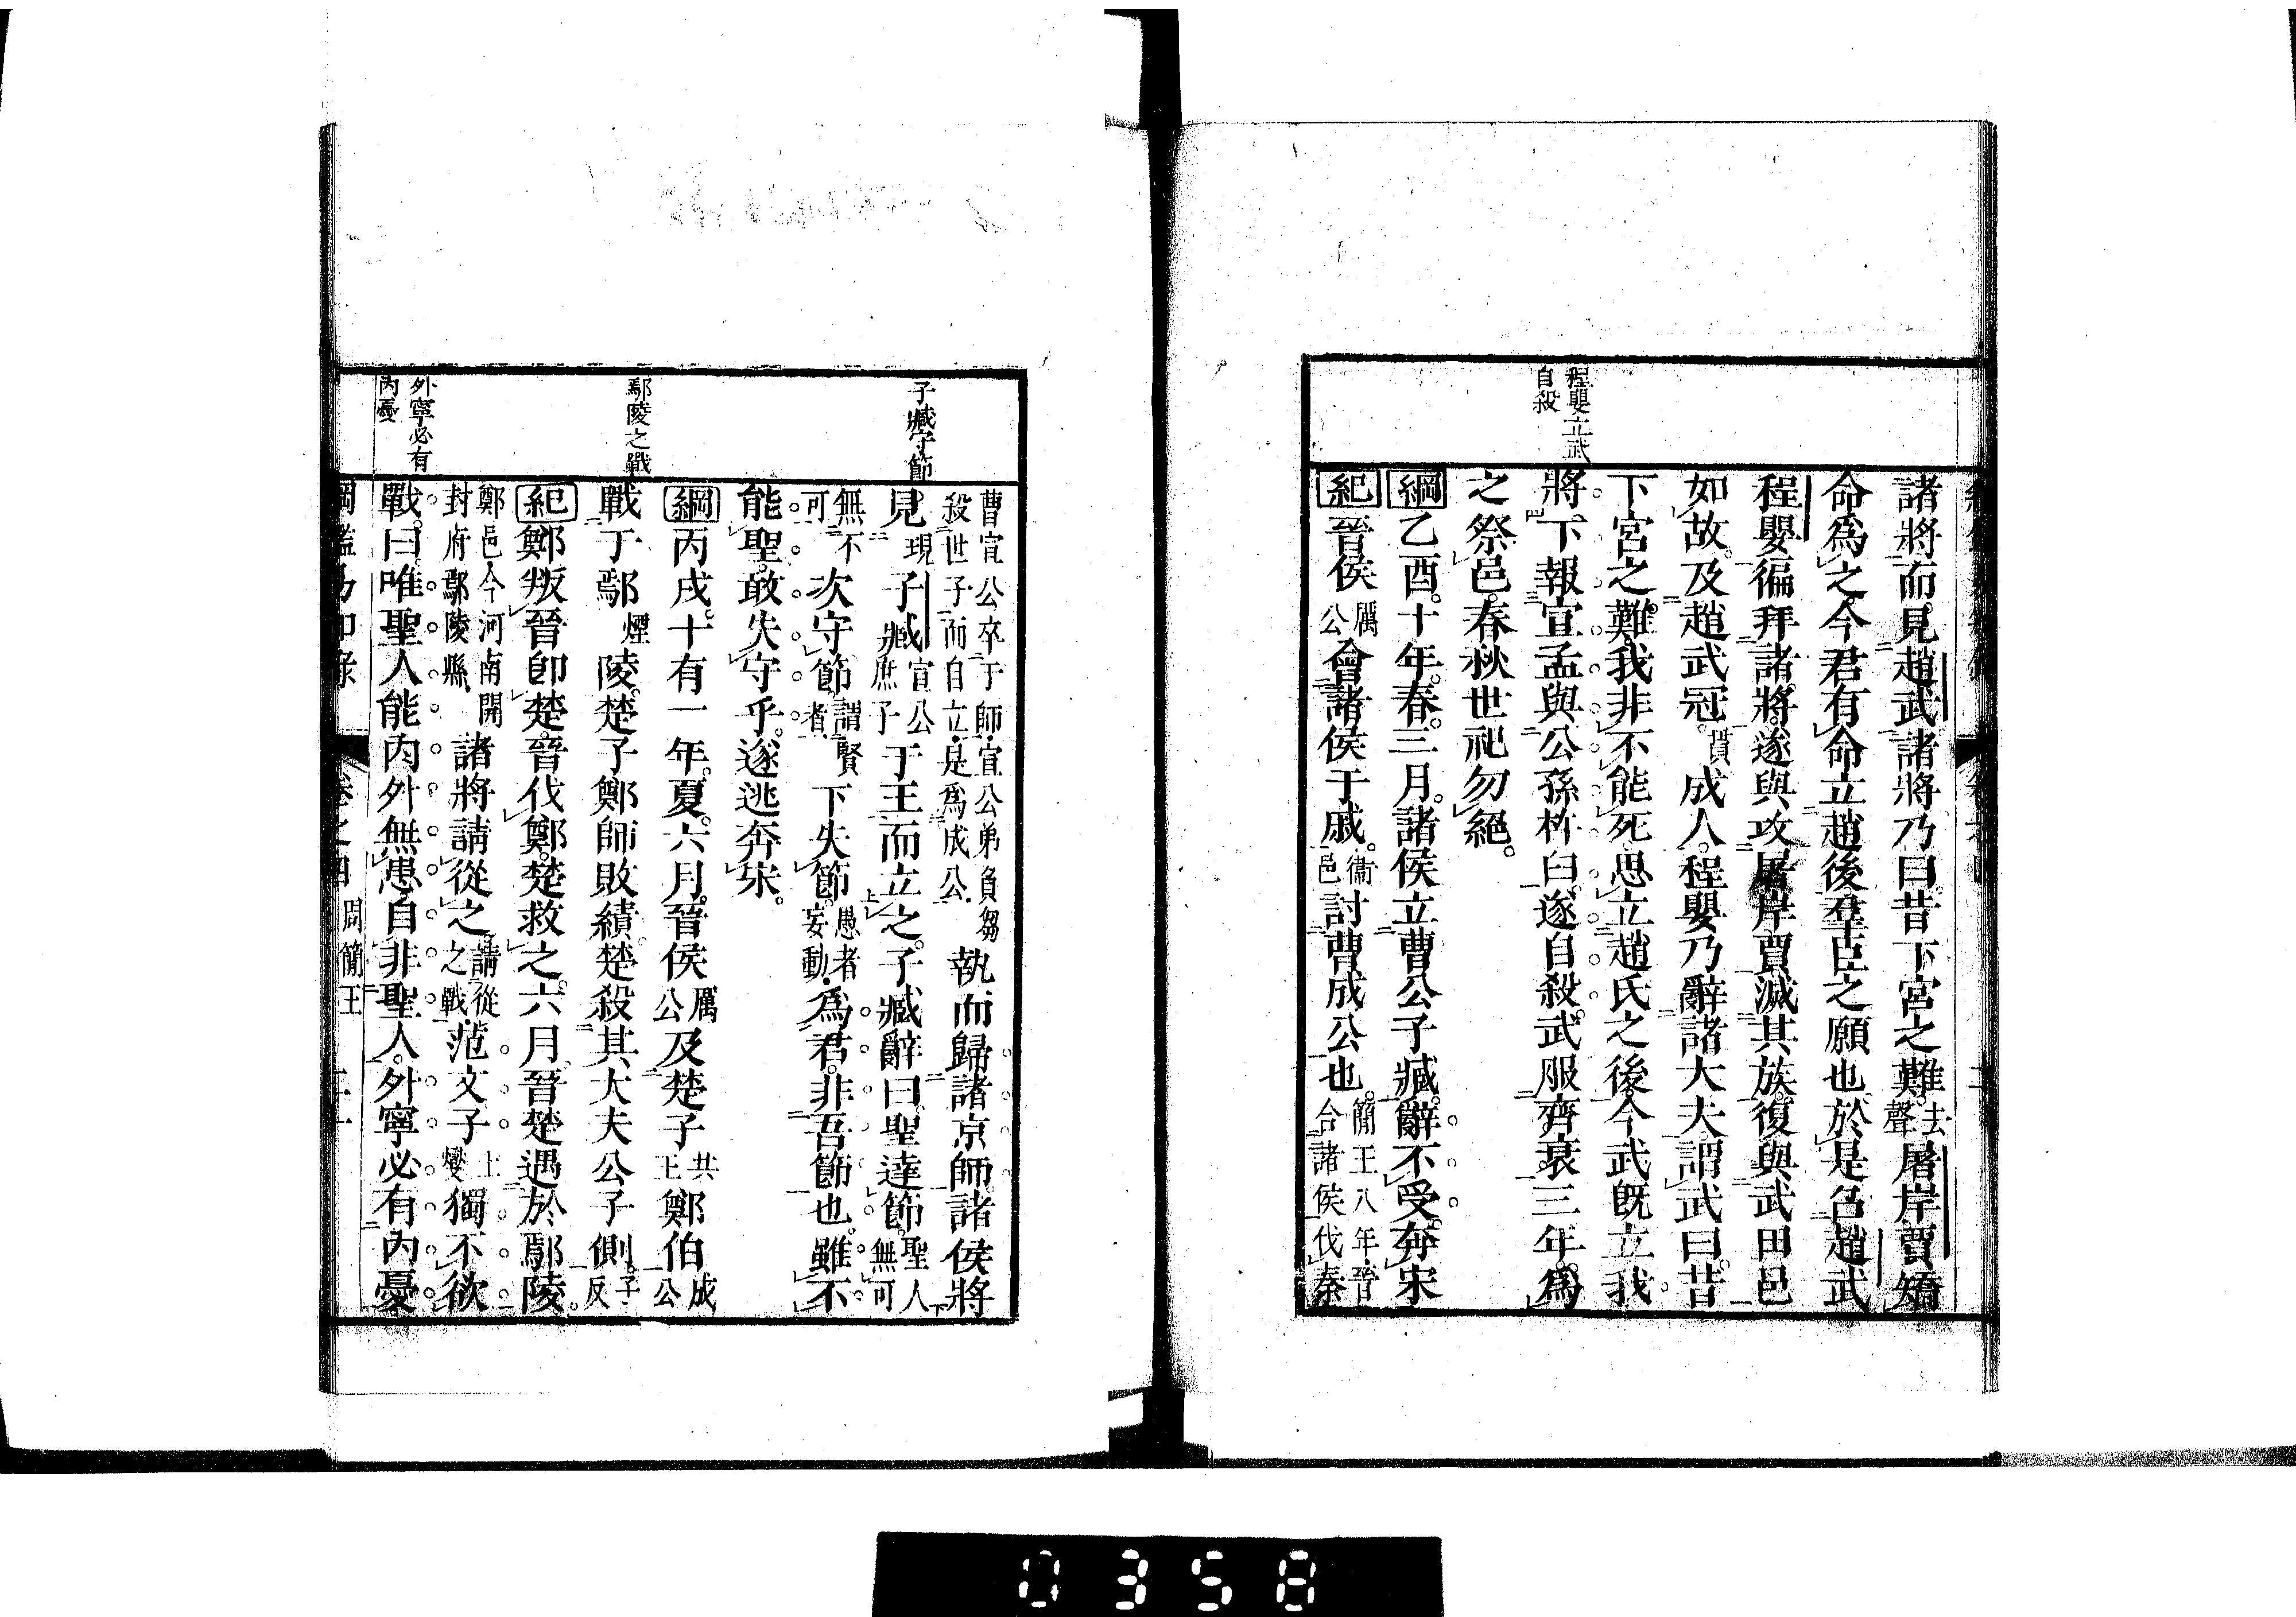 程嬰立武
自殺
諸將而見趙武諸將乃曰昔下宮之難去聲屠岸賈矯
命爲之今君有命立趙後羣臣之願也於是召趙武
程嬰徧拜諸將遂與攻屠岸賈滅其族復與武田邑
如故及趙武冠貫成人程嬰乃辭諸大夫謂武曰昔
下宮之難我非不能死思立趙氏之後今武既立我
將下報宣孟與公孫杵臼遂自殺武服齊衰三年爲
之祭邑春秋世祀勿絕
綱乙酉十年春三月諸侯立曹公子臧辭不受奔宋
紀晉侯厲公會諸侯于戚衞邑討曹成公也簡王八年晉合諸侯伐秦
子臧守節
鄢陵之戰
外寧必有
內憂
曹宣公卒于師宣公弟負芻殺世子而自立是爲成公執而歸諸京師諸侯將
見現子臧宣公庶子于王而立之子臧辭曰聖達節聖人無可
無不可次守節謂賢者下失節愚者妄動爲君非吾節也雖不
能聖敢失守乎遂逃奔宋
綱丙戌十有一年夏六月晉侯厲公及楚子共王鄭伯成公
戰于鄢煙陵楚子鄭師敗績楚殺其大夫公子側子反
紀鄭叛晉卽楚晉伐鄭楚救之六月晉楚遇於鄢陵
鄭邑今河南開封府鄢陵縣諸將請從之請從之戰范文子士燮獨不欲
戰曰唯聖人能內外無患自非聖人外寧必有內憂
綱鑑易知錄 卷之四 周簡王
0358